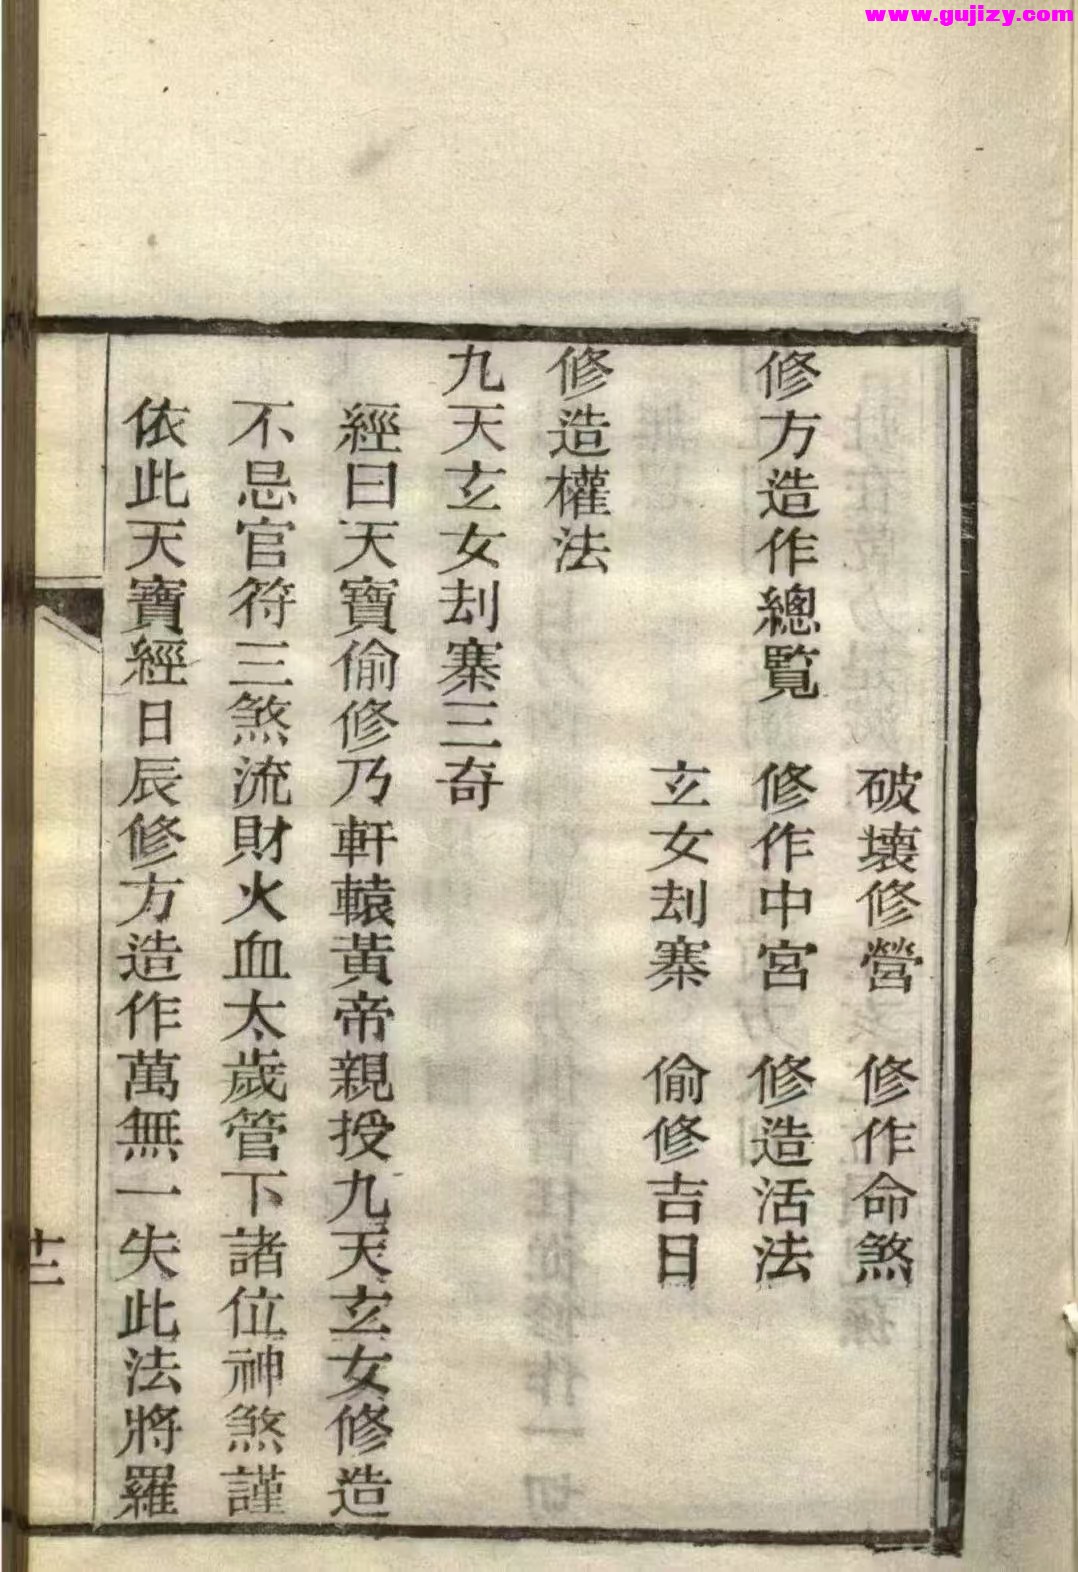 www.gujizy.com
破壞修營　修作命煞
修方造作總覽　修作中宮　修造活法
玄女刦寨　偷修吉日
修造權法
九天玄女刦寨三奇
經曰天寶偷修乃軒轅黃帝親授九天玄女修造
不忌官符三煞流財火血太歲管下諸位神煞謹
依此天寶經日辰修方造作萬無一失此法將羅